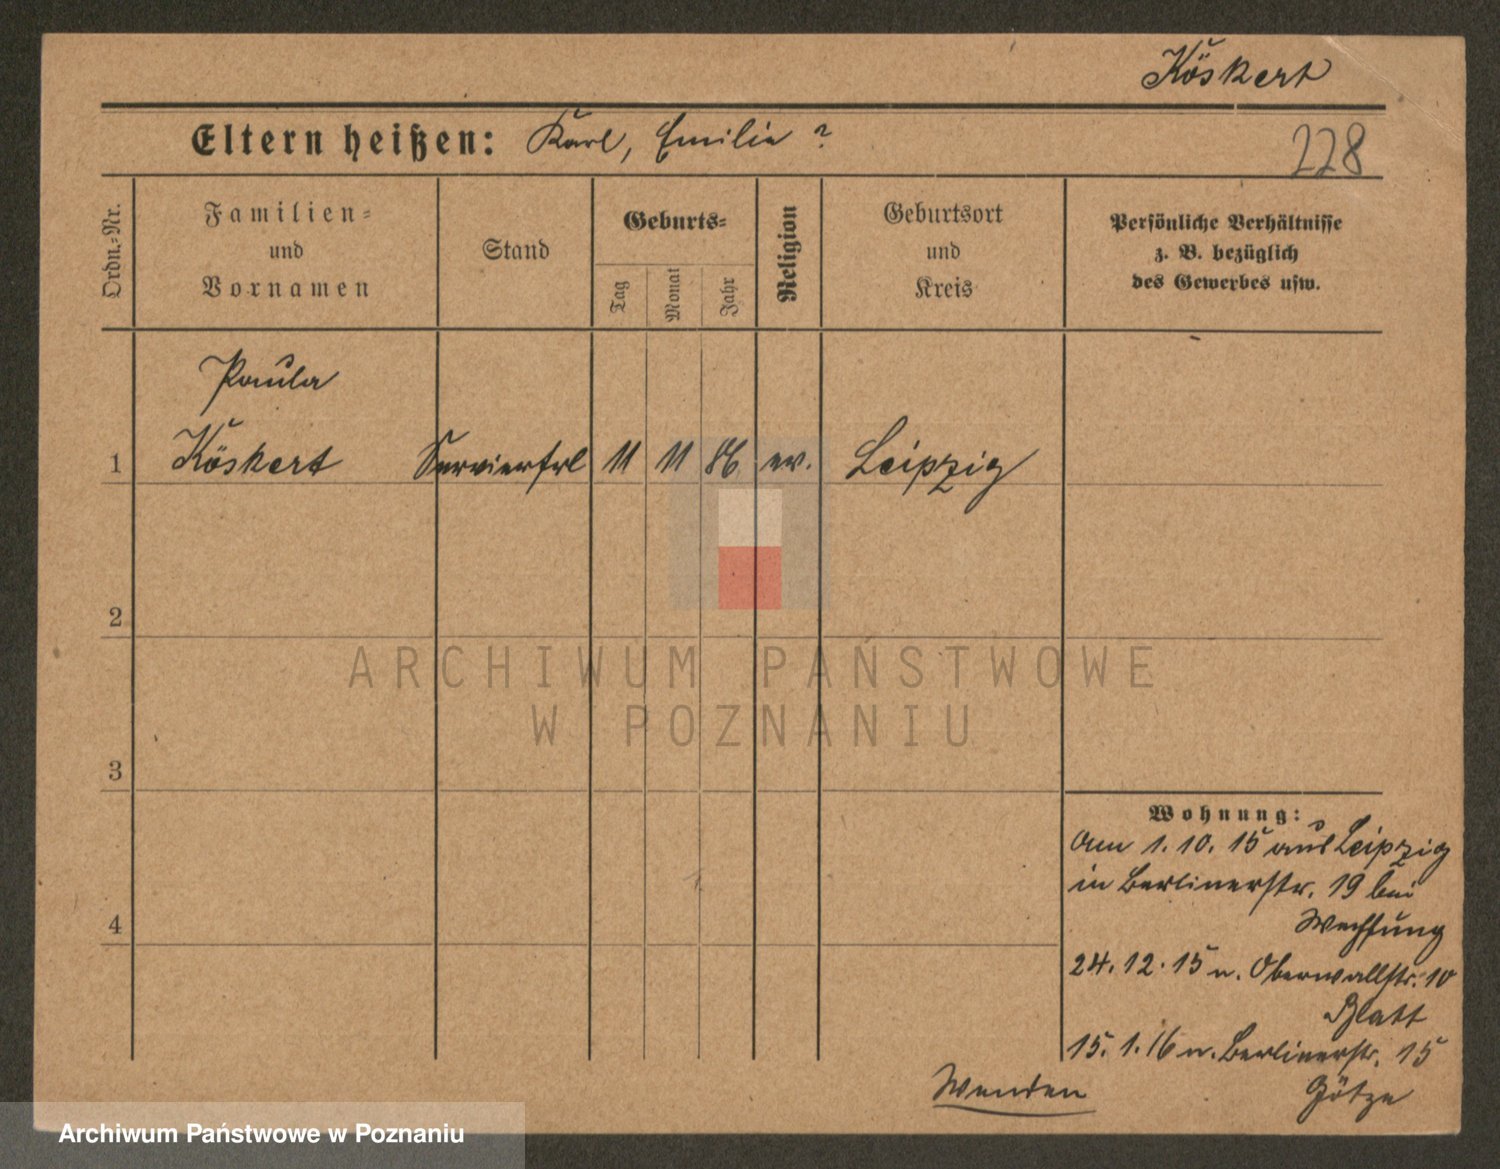 Köskert
Eltern heißen: Karl, Emilie ?
228
Ordn.-Nr.
Familien-
und
Vornamen
Stand
Geburts-
Tag
Monat
Jahr
Religion
Geburtsort
und
Kreis
Persönliche Verhältnisse
z. B. bezüglich
des Gewerbes usw.
Paula
1 Köskert Servierfrl 11 11 86 ev. Leipzig
2
ARCHIWUM PAŃSTWOWE
W POZNANIU
3
4
Wohnung:
Am 1. 10. 15 aus Leipzig
in Berlinerstr. 19 bei
24. 12. 15 n. Oberwallstr. 10
Blatt
15. 1. 16 n. Berlinerstr. 15
Götze
Wenden
Archiwum Państwowe w Poznaniu